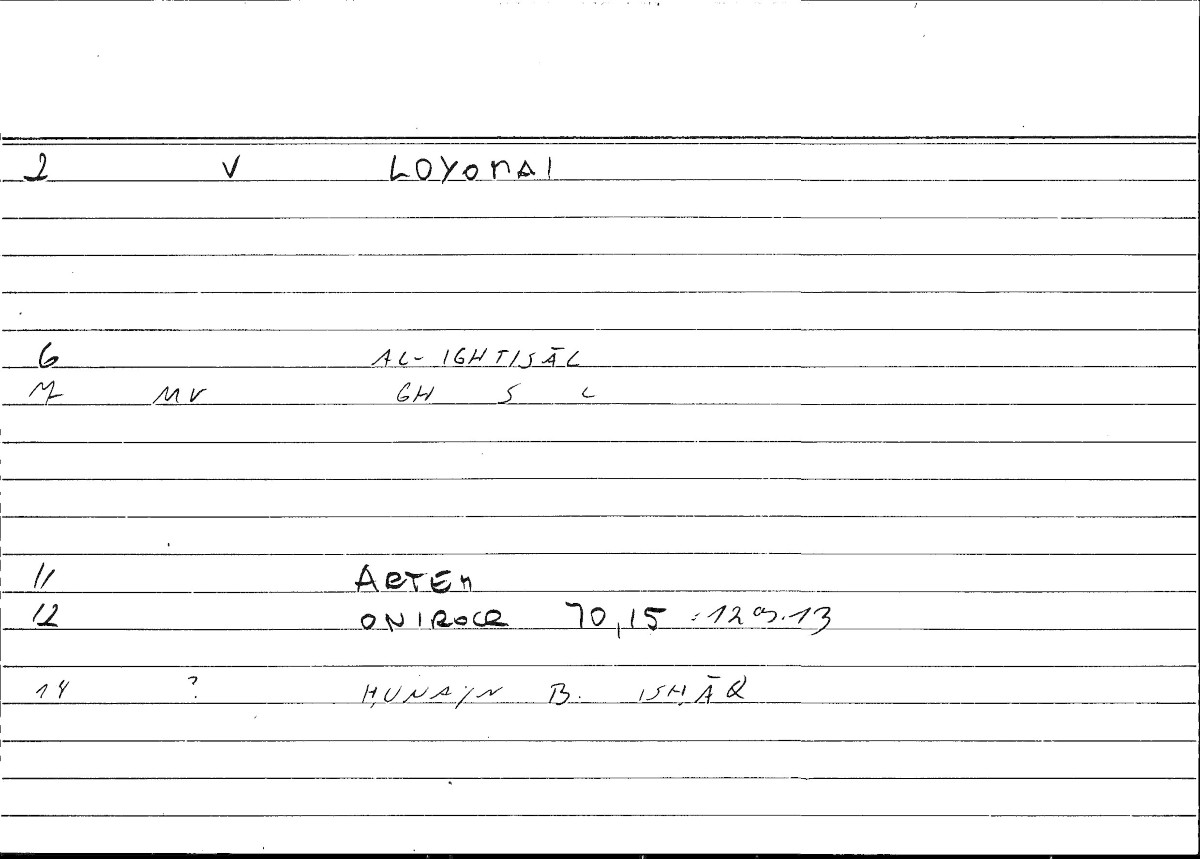 2 V LOYOMAI
6 AL-IGHTISĀL
M MV GH S L
11 ARTEM
12 ONIROCR 70,15 : 129.13
14 ? ḤUNAYN B. ISḤĀQ